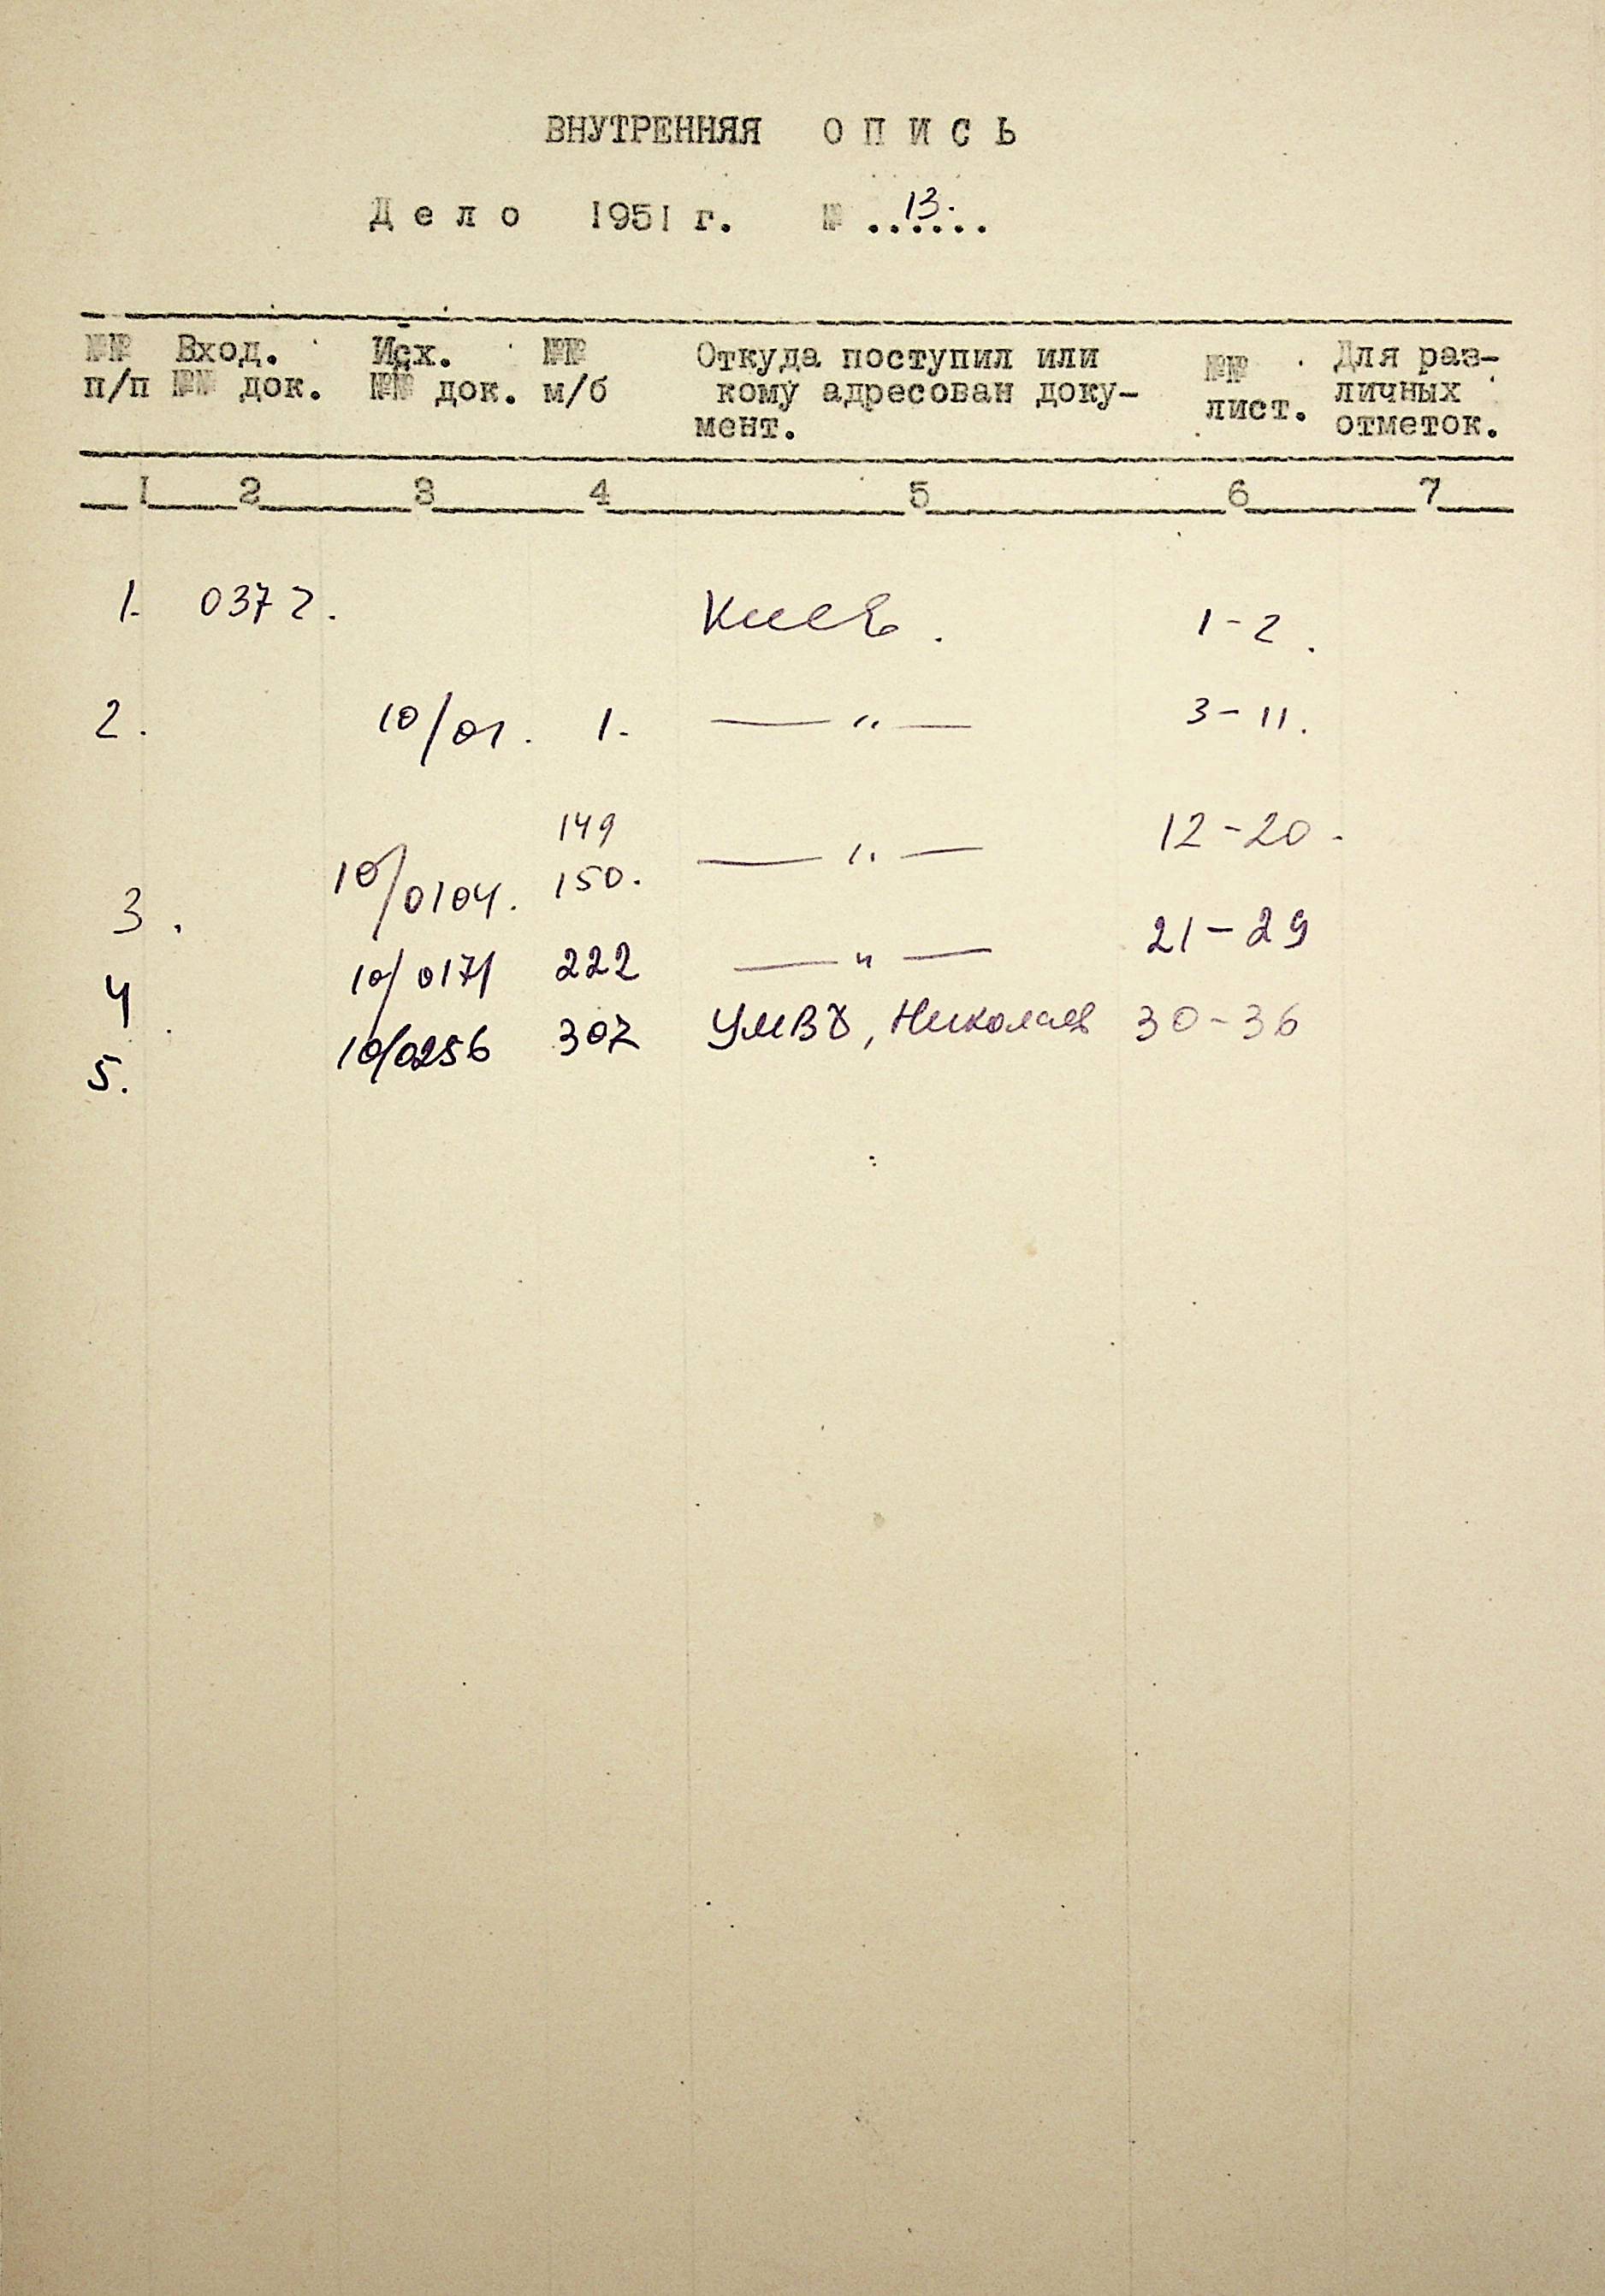 ВНУТРЕННЯЯ О П И С Ь
Д е л о 1951 г. № ..13......
№№ Вход. Исх. №№ Откуда поступил или №№ Для раз-
п/п №№ док. №№ док. м/б кому адресован доку- лист. личных
мент. отметок.
1 2 3 4 5 6 7
1. 0372. Киев. 1-2.
2. 10/01. 1. —"— 3-11.
149
3. 10/0104. 150. —"— 12-20.
4 10/0171 222 —"— 21-29
5. 10/0256 307 УМВД, Николаев 30-36